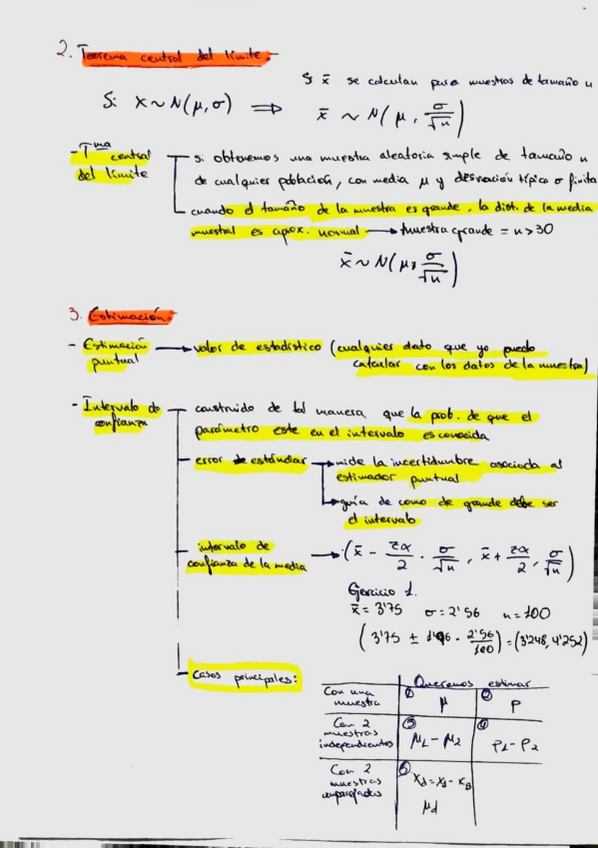 2. Teorema central del límite.-
Si x̄ se calculan para muestras de tamaño n
Si X ~ N(μ, σ) ⟹ x̄ ~ N(μ, σ/√n)
- Tma central del límite
si obtenemos una muestra aleatoria simple de tamaño n
de cualquier población, con media μ y desviación típica σ finita
cuando el tamaño de la muestra es grande, la dist. de la media
muestral es aprox. normal → Muestra grande = n>30
x̄ ~ N(μ, σ/√n)
3. Estimación.-
- Estimación puntual → valor de estadístico (cualquier dato que yo puedo
calcular con los datos de la muestra)
- Intervalo de confianza
construido de tal manera que la prob. de que el
parámetro este en el intervalo es conocida
error estándar → mide la incertidumbre asociada al
estimador puntual
→ guía de como de grande debe ser
el intervalo
intervalo de
confianza de la media → (x̄ - zα/2 · σ/√n, x̄ + zα/2 · σ/√n)
Ejercicio 1.
x̄ = 3'75 σ = 2'56 n = 100
(3'75 ± 1'96 · 2'56/100) = (3'248, 4'252)
Casos principales:
Queremos estimar
Con una muestra ① μ ② P
Con 2 muestras independientes ③ μ1 - μ2 ④ P1 - P2
Con 2 muestras emparejadas ⑤ Xd = XA - XB
μd